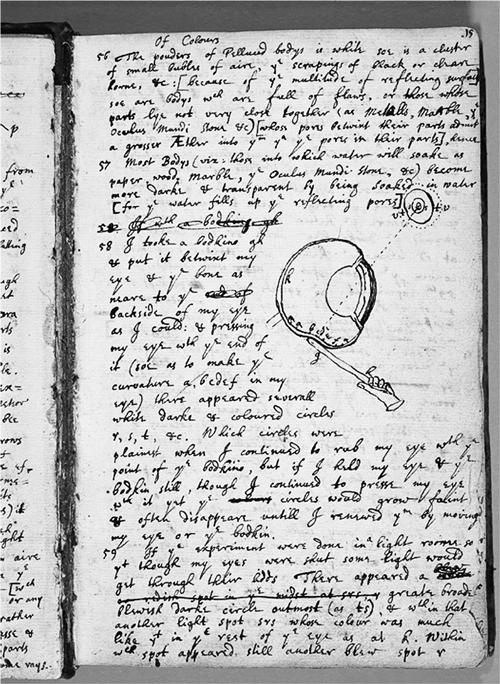 Of Colours
15
56 The pouders of Pellucid bodys is white soe is a cluster
of small bubles of aire, yᵉ scrapings of black or cleare
horne, &c: [because of yᵉ multitude of reflecting surfaces
soe are bodys wᶜʰ are full of flaws, or those whose
parts lye not very close together (as Metalls, Marble, yᵉ
Oculus Mundi stone &c) [whose pores betwixt their parts admit
a grosser Æther into yᵐ yⁿ yᵉ pores in their parts], hence
57 Most Bodys (viz: those into which water will soake as
paper wood, Marble, yᵉ Oculus Mundi stone, &c) become
more darke & transparent by being soaked in water
[for yᵉ water fills up yᵉ reflecting pores]
58 If wᵗʰ a bodkine gh
58 I tooke a bodkine gh
& put it betwixt my
eye & yᵉ bone as
neare to yᵉ
backside of my eye
as I could: & pressing
my eye wᵗʰ yᵉ end of
it (soe as to make yᵉ
curvature a, bcdef in my
eye) there appeared severall
white darke & coloured circles
r, s, t, &c. Which circles were
plainest when I continued to rub my eye wᵗʰ yᵉ
point of yᵉ bodkine, but if I held my eye & yᵉ
bodkin still though I continued to presse my eye
wᵗʰ it yet yᵉ circles would grow faint
& often disappeare untill I renewed yᵐ by moving
my eye or yᵉ bodkin.
59 If yᵉ experiment were done in a light roome so
yᵗ though my eyes were shut some light would
get through their lidds There appeared a
greate broade
blewish darke circle outmost (as ts), & wᵗʰin that
another light spot srs whose colour was much
like yᵗ in yᵉ rest of yᵉ eye as at k. Within
wᶜʰ spot appeared still another blew spot r